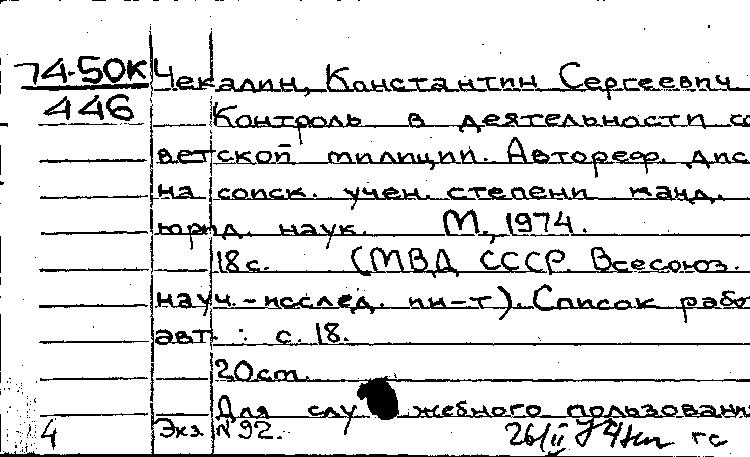 74-50К Чекалин, Константин Сергеевич
446 Контроль в деятельности со
ветской милиции. Автореф. дис
на соиск. учен. степени канд.
юрид. наук. М., 1974.
18с. (МВД СССР. Всесоюз.
науч.-исслед. ин-т). Список рабо
авт.: с. 18.
20см.
Для служебного пользовани
4 Экз. №92. 26/II 74 гс